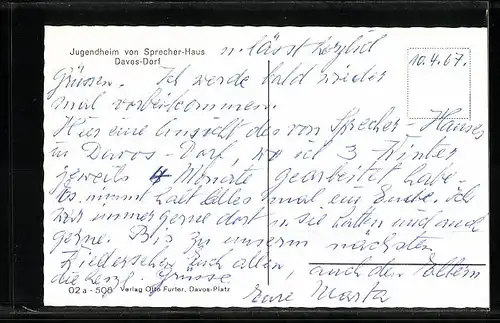 Jugendheim von Sprecher-Haus
Davos-Dorf
u. lässt herzlich
10.4.67.
grüssen. Ich werde bald wieder
mal vorbeikommen.
Hier eine Ansicht des von Sprecher-Hauses
in Davos-Dorf, wo ich 3 Winter
jeweils 4 Monate gearbeitet habe.
Es nimmt halt alles mal ein Ende. ich
war immer gerne dort u. sie hatten mich auch
gerne. Bis zu unserm nächsten
Wiedersehen Euch allen, auch den Eltern
die herzl. Grüsse
Eure Marta
02a-508 Verlag Otto Furter, Davos-Platz